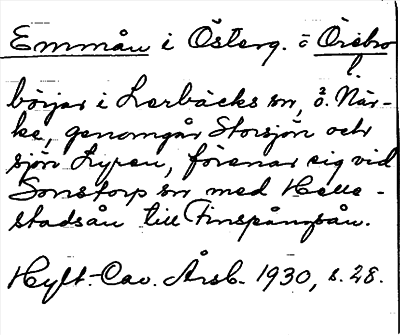 Emmån i Österg. o Örebro
l.
börjar i Lerbäcks sn, ö. När-
ke, genomgår Storsjön och
sjön Lypen, förenar sig vid
Sonstorp sn med Helle-
stadsån till Finspångsån.
Hylt.-Cav. Årsb. 1930, s. 28.